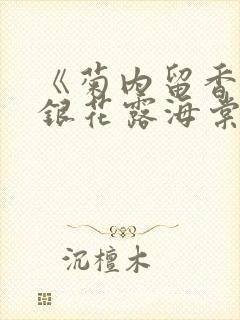 《菊内留香
銀花露海棠
沉檀木